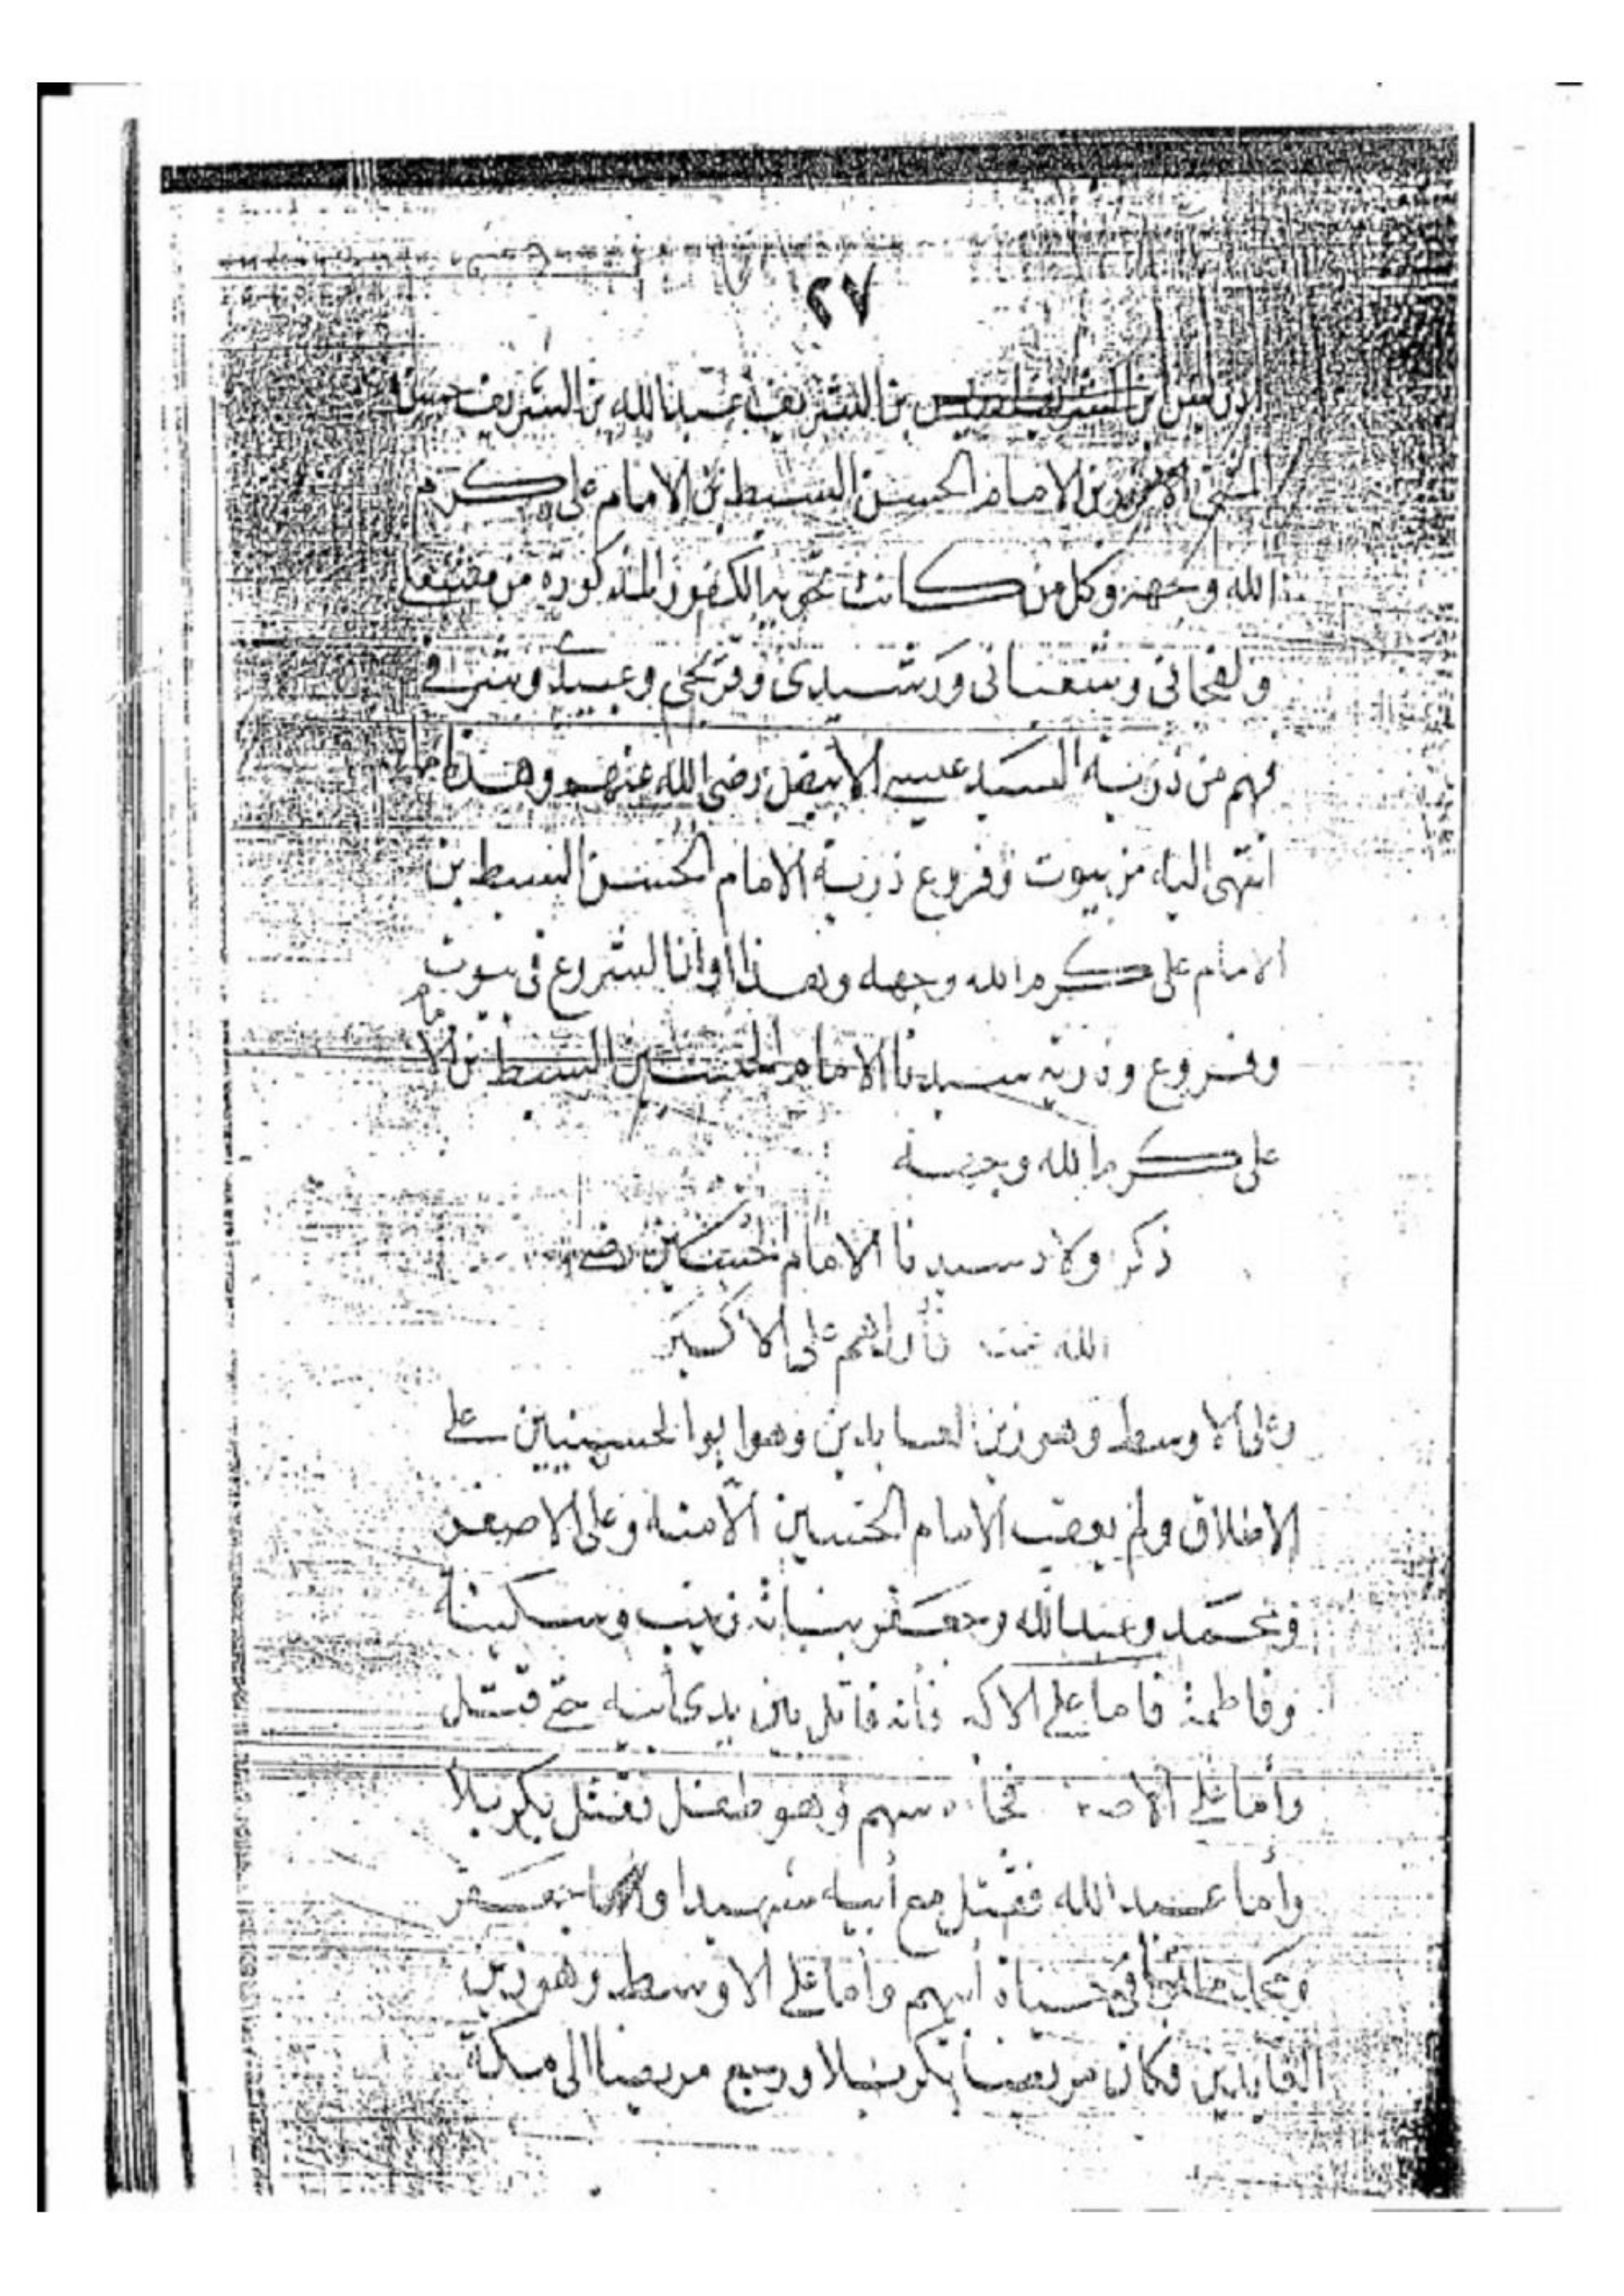 ٢٧
ادريس ابن الشريف ادريس بن الشريف عبد الله بن الشريف حسن
المثنى بن الامام الحسن السبط بن الامام على كرم
الله وجهه وكل من كانت بحويه الكفور المذكوره من
وشعبانى ورشيدى وعبيدى
فهم من ذرية السيد عيسى الابيض رضى الله عنهم وهذا ما
انتهى اليه من بيوت وفروع ذرية الامام الحسن السبط بن
الامام على كرم الله وجهه وهذا اوانا لشروع فى بيوت
وفروع وذريه سيدنا الامام الحسين السبط بن الامام
على كرم الله وجهه
ذكر ولاد سيدنا الامام الحسين رضى
الله عنه فأولهم على الاكبر
وعلى الاوسط وهو زين العابدين وهو ابو الحسينيين على
الاطلاق ولم يعقب الامام الحسين الا منه وعلى الاصغر
ومحمد وعبد الله وجعفر بناته زينب وسكينة
وفاطمة فاما على الاكبر فأنه قاتل بين يدى أبيه حتى قتل
وأما على الاصغر فجاءه سهم وهو طفل فقتل بكربلا
وأما عبد الله فقتل مع أبيه شهيدا وأما جعفر
ومحمد فماتوا فى حياة أبيهم وأما على الاوسط وهو زين
العابدين فكان مريضا بكربلا ورجع مريضا الى مكة